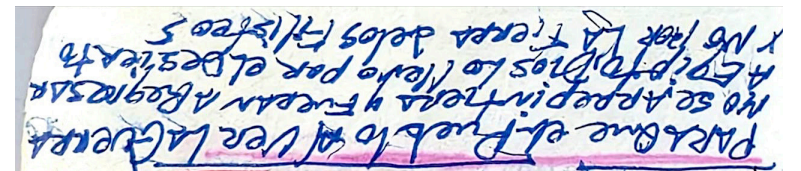 PARA QUE el Pueblo Al VER LA GUERRA
NO SE ARREPINTIERA y FUERAN A REGRESAR
A EGIPTO, DIOS Lo llevo por el DESIERTO
Y NO POR LA TIERRA de los FIlISTEOS